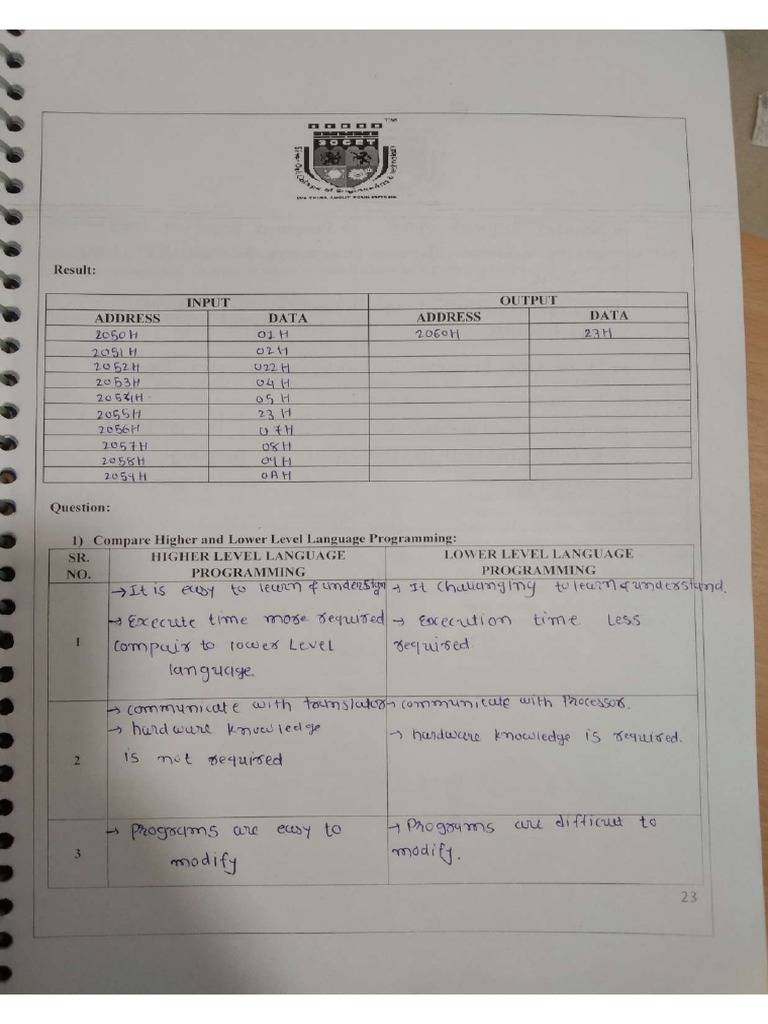 SOCET
Result:
INPUT OUTPUT
ADDRESS DATA ADDRESS DATA
2050H 01H 2060H 23H
2051H 02H
2052H 022H
2053H 04H
2054H 05H
2055H 23H
2056H 07H
2057H 08H
2058H 09H
2059H 0AH
Question:
1) Compare Higher and Lower Level Language Programming:
SR. NO.
HIGHER LEVEL LANGUAGE PROGRAMMING
LOWER LEVEL LANGUAGE PROGRAMMING
1
→ It is easy to learn &
→ Execute time more required
compair to lower Level
language.
→ It challanging to learn & understand.
→ Execution time less
required.
2
→ communicate with translator
→ hardware knowledge
is not required
→ communicate with Processor.
→ hardware knowledge is required.
3
→ programs are easy to
modify
→ Programs are difficut to
modify.
23